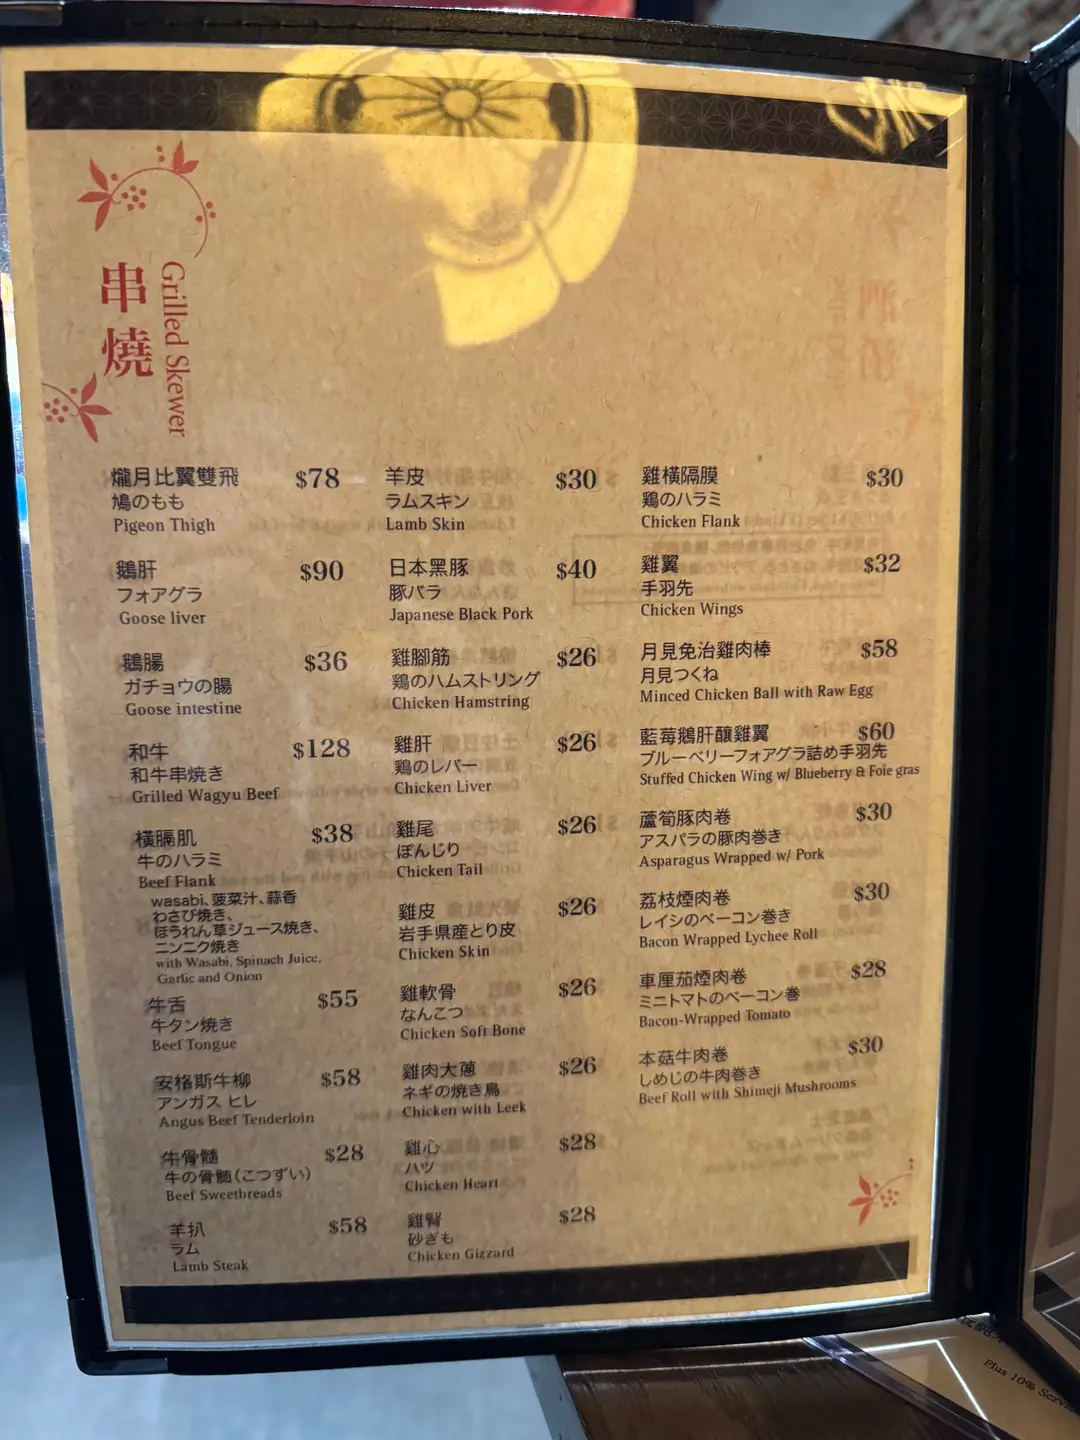 串燒
Grilled Skewer
爖月比翼雙飛 $78
鳩のもも
Pigeon Thigh
鵝肝 $90
フォアグラ
Goose liver
鵝腸 $36
ガチョウの腸
Goose intestine
和牛 $128
和牛串焼き
Grilled Wagyu Beef
橫膈肌 $38
牛のハラミ
Beef Flank
wasabi、菠菜汁、蒜香
わさび焼き、
ほうれん草ジュース焼き、
ニンニク焼き
with Wasabi, Spinach Juice,
Garlic and Onion
牛舌 $55
牛タン焼き
Beef Tongue
安格斯牛柳 $58
アンガス ヒレ
Angus Beef Tenderloin
牛骨髓 $28
牛の骨髄(こつずい)
Beef Sweetbreads
羊扒 $58
ラム
Lamb Steak
羊皮 $30
ラムスキン
Lamb Skin
日本黑豚 $40
豚バラ
Japanese Black Pork
雞腳筋 $26
鶏のハムストリング
Chicken Hamstring
雞肝 $26
鶏のレバー
Chicken Liver
雞尾 $26
ぼんじり
Chicken Tail
雞皮 $26
岩手県産とり皮
Chicken Skin
雞軟骨 $26
なんこつ
Chicken Soft Bone
雞肉大蔥 $26
ネギの焼き鳥
Chicken with Leek
雞心 $28
ハツ
Chicken Heart
雞腎 $28
砂ぎも
Chicken Gizzard
雞橫隔膜 $30
鶏のハラミ
Chicken Flank
雞翼 $32
手羽先
Chicken Wings
月見免治雞肉棒 $58
月見つくね
Minced Chicken Ball with Raw Egg
藍莓鵝肝釀雞翼 $60
ブルーベリーフォアグラ詰め手羽先
Stuffed Chicken Wing w/ Blueberry & Foie gras
蘆筍豚肉卷 $30
アスパラの豚肉巻き
Asparagus Wrapped w/ Pork
荔枝煙肉卷 $30
レイシのベーコン巻き
Bacon Wrapped Lychee Roll
車厘茄煙肉卷 $28
ミニトマトのベーコン巻
Bacon-Wrapped Tomato
本菇牛肉卷 $30
しめじの牛肉巻き
Beef Roll with Shimeji Mushrooms
Plus 10%